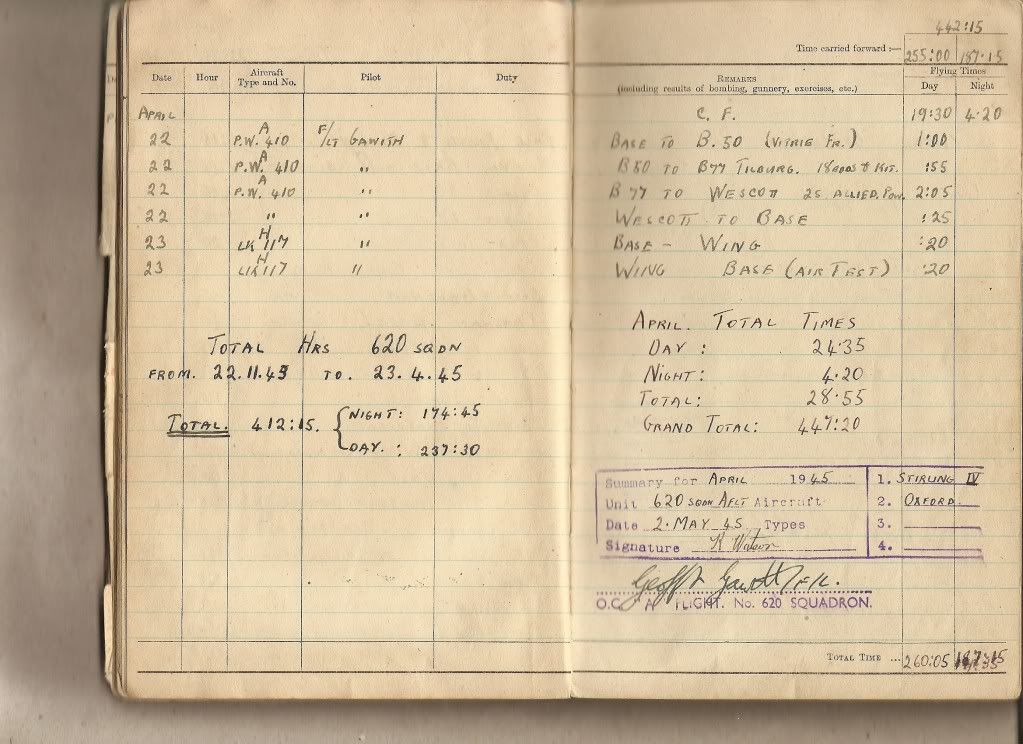 442:15
Time carried forward :—
255:00 187:15
Date Hour Aircraft Type and No. Pilot Duty
Remarks
(including results of bombing, gunnery, exercises, etc.)
Flying Times
Day Night
APRIL
C. F. 19:30 4.20
22 A P.W. 410 F/LT GAWITH BASE TO B.50 (VITRIE FR.) 1:00
22 A P.W. 410 " B50 TO B77 TILBURG. KIT. :55
22 A P.W. 410 " B77 TO WESCOTT 25 ALLIED. POW. 2:05
22 " " WESCOTT TO BASE :25
23 H LK 117 " BASE - WING :20
23 H LK 117 " WING BASE (AIR TEST) :20
TOTAL HRS 620 SQDN
FROM. 22.11.43 TO. 23.4.45
TOTAL. 412:15. { NIGHT: 174:45
DAY. : 237:30
APRIL. TOTAL TIMES
DAY : 24.35
NIGHT: 4.20
TOTAL: 28.55
GRAND TOTAL: 447:20
Summary for APRIL 1945 1. STIRLING IV
Unit 620 SQDN AFLT Aircraft 2. OXFORD
Date 2. MAY 45 Types 3.
Signature K Watson 4.
F/L.
O.C. A FLIGHT. No. 620 SQUADRON.
Total Time ... 260:05 187:15